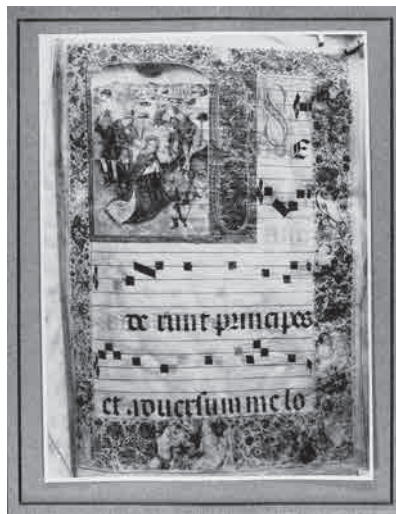 S
E
de runt principes
et aduersum me lo